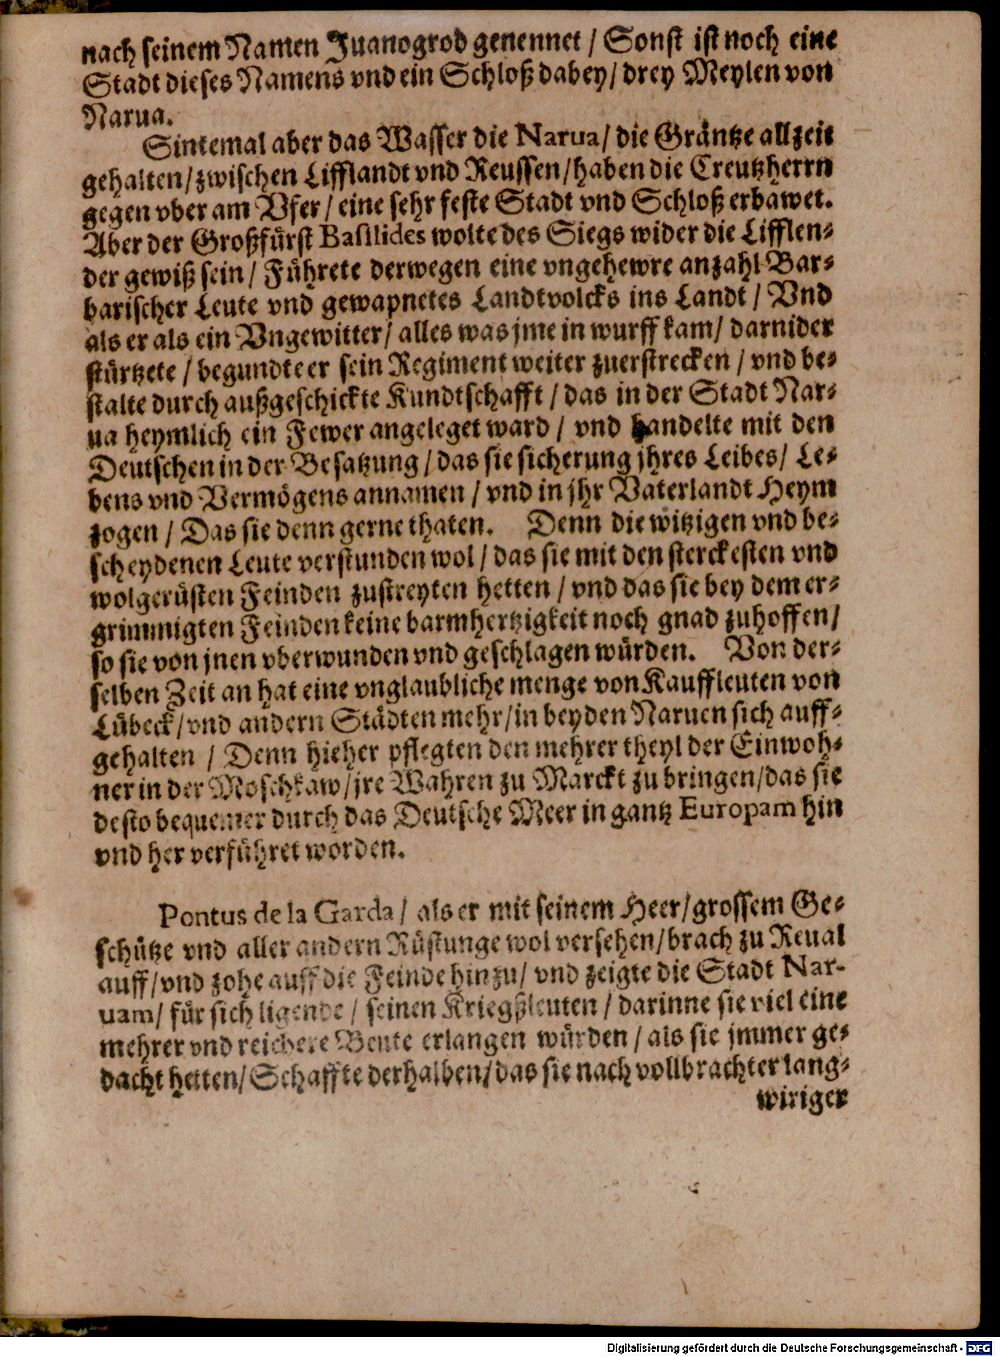 nach seinem Namen Juanogrod genennet / Sonst ist noch eine
Stadt dieses Namens vnd ein Schloß dabey / drey Meylen von
Narua.
Sintemal aber das Wasser die Narua / die Gräntze allzeit
gehalten / zwischen Lifflandt vnd Reussen / haben die Creutzherrn
gegen vber am Vfer / eine sehr feste Stadt vnd Schloß erbawet.
Aber der Großfürst Basilides wolte des Siegs wider die Lifflen-
der gewiß sein / Führete derwegen eine vngehewre anzahl Bar-
barischer Leute vnd gewapnetes Landtvolcks ins Landt / Vnd
als er als ein Vngewitter / alles was jme in wurff kam / darnider
stürtzete / begundte er sein Regiment weiter zuerstrecken / vnd be-
stalte durch außgeschickte Kundtschafft / das in der Stadt Nar-
ua heymlich ein Fewer angeleget ward / vnd handelte mit den
Deutschen in der Besatzung / das sie sicherung jhres Leibes / Le-
bens vnd Vermögens annamen / vnd in jhr Vaterlandt Heym
zogen / Das sie denn gerne thaten. Denn die witzigen vnd be-
scheydenen Leute verstunden wol / das sie mit den sterckesten vnd
wolgerüsten Feinden zustreyten hetten / vnd das sie bey dem er-
grimmigten Feinden keine barmhertzigkeit noch gnad zuhoffen /
so sie von jnen vberwunden vnd geschlagen würden. Von der-
selben Zeit an hat eine vnglaubliche menge von Kauffleuten von
Lübeck / vnd andern Städten mehr / in beyden Naruen sich auff-
gehalten / Denn hieher pflegten den mehrer theyl der Einwoh-
ner in der Moschkaw / jre Wahren zu Marckt zu bringen / das sie
desto bequemer durch das Deutsche Meer in gantz Europam hin
vnd her verführet worden.
Pontus de la Garda / als er mit seinem Heer / grossem Ge-
schütze vnd aller andern Rüstunge wol versehen / brach zu Reual
auff / vnd zohe auff die Feinde hinzu / vnd zeigte die Stadt Nar-
uam / für sich ligende / seinen Kriegßleuten / darinne sie viel eine
mehrer vnd reichere Beute erlangen würden / als sie jmmer ge-
dacht hetten / Schaffte derhalben / das sie nach vollbrachter lang-
wiriger
Digitalisierung gefördert durch die Deutsche Forschungsgemeinschaft - DFG